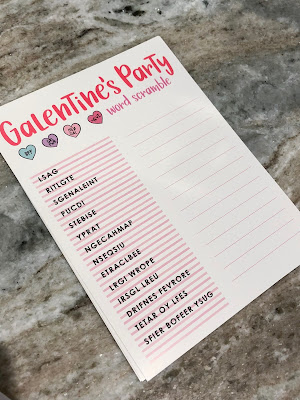 Galentine's Party
word scramble
LSAG
RITLGTE
SGENALEINT
PUCDI
STEBISE
YPRAT
NGECAHMAP
NSEQSIU
ETRACLBEE
LRGI WROPE
IRSGL LREU
DRIFNES FEVRORE
TETAR OY LFES
SFIER BOFEER YSUG